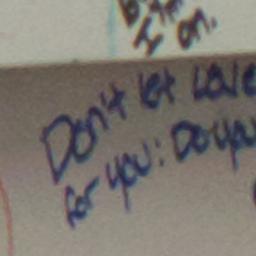 I
on.
Don't let Love
for you: Do you